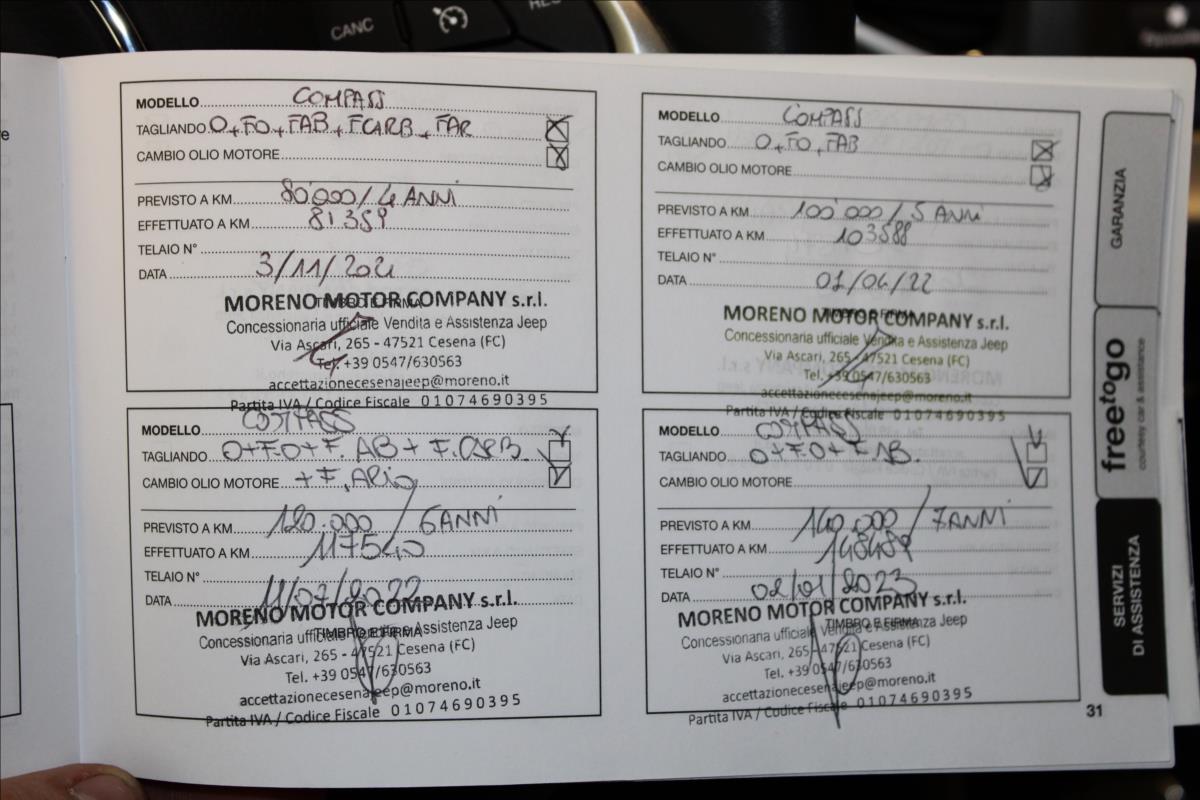 CANC
RES
MODELLO COMPASS
TAGLIANDO O+FO+FAB+FCARB+FAR
CAMBIO OLIO MOTORE
PREVISTO A KM 80'000/4 ANNI
EFFETTUATO A KM 81359
TELAIO N°
DATA 3/11/2021
TIMBRO E FIRMA
MORENO MOTOR COMPANY s.r.l.
Concessionaria ufficiale Vendita e Assistenza Jeep
Via Ascari, 265 - 47521 Cesena (FC)
Tel. +39 0547/630563
accettazionecesenajeep@moreno.it
Partita IVA / Codice Fiscale 01074690395
MODELLO COMPASS
TAGLIANDO O+FO+FAB
CAMBIO OLIO MOTORE
PREVISTO A KM 100'000/5 ANNI
EFFETTUATO A KM 103588
TELAIO N°
DATA 01/04/22
TIMBRO E FIRMA
MORENO MOTOR COMPANY s.r.l.
Concessionaria ufficiale Vendita e Assistenza Jeep
Via Ascari, 265 - 47521 Cesena (FC)
Tel. +39 0547/630563
accettazionecesenajeep@moreno.it
Partita IVA / Codice Fiscale 01074690395
MODELLO COMPASS
TAGLIANDO O+F.O+F.AB+F.CARB.
CAMBIO OLIO MOTORE +F.ARIA
PREVISTO A KM 120.000/6ANNI
EFFETTUATO A KM 117540
TELAIO N°
DATA 11/07/2022
TIMBRO E FIRMA
MORENO MOTOR COMPANY s.r.l.
Concessionaria ufficiale Vendita e Assistenza Jeep
Via Ascari, 265 - 47521 Cesena (FC)
Tel. +39 0547/630563
accettazionecesenajeep@moreno.it
Partita IVA / Codice Fiscale 01074690395
MODELLO COMPASS
TAGLIANDO O+F.O+F.AB.
CAMBIO OLIO MOTORE
PREVISTO A KM 140.000/7ANNI
EFFETTUATO A KM 148489
TELAIO N°
DATA 02/01/2023
TIMBRO E FIRMA
MORENO MOTOR COMPANY s.r.l.
Concessionaria ufficiale Vendita e Assistenza Jeep
Via Ascari, 265 - 47521 Cesena (FC)
Tel. +39 0547/630563
accettazionecesenajeep@moreno.it
Partita IVA / Codice Fiscale 01074690395
GARANZIA
freetogo
courtesy car & assistance
SERVIZI
DI ASSISTENZA
31